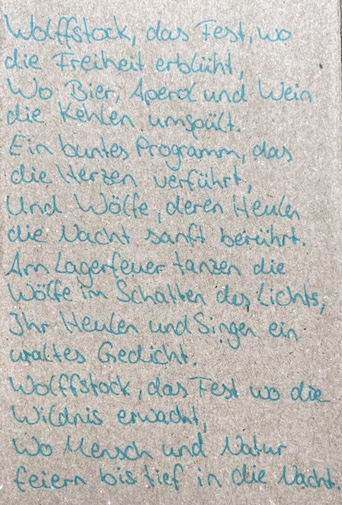 Wolffstock, das Fest, wo
die Freiheit erblüht,
Wo Bier, Aperol und Wein
die Kehlen umspült.
Ein buntes Programm, das
die Herzen verführt,
Und Wölfe, deren Heulen
die Nacht sanft berührt.
Am Lagerfeuer tanzen die
Wölfe im Schatten des Lichts,
Ihr Heulen und Singen ein
uraltes Gedicht.
Wolffstock, das Fest wo die
Wildnis erwacht,
Wo Mensch und Natur
feiern bis tief in die Nacht.